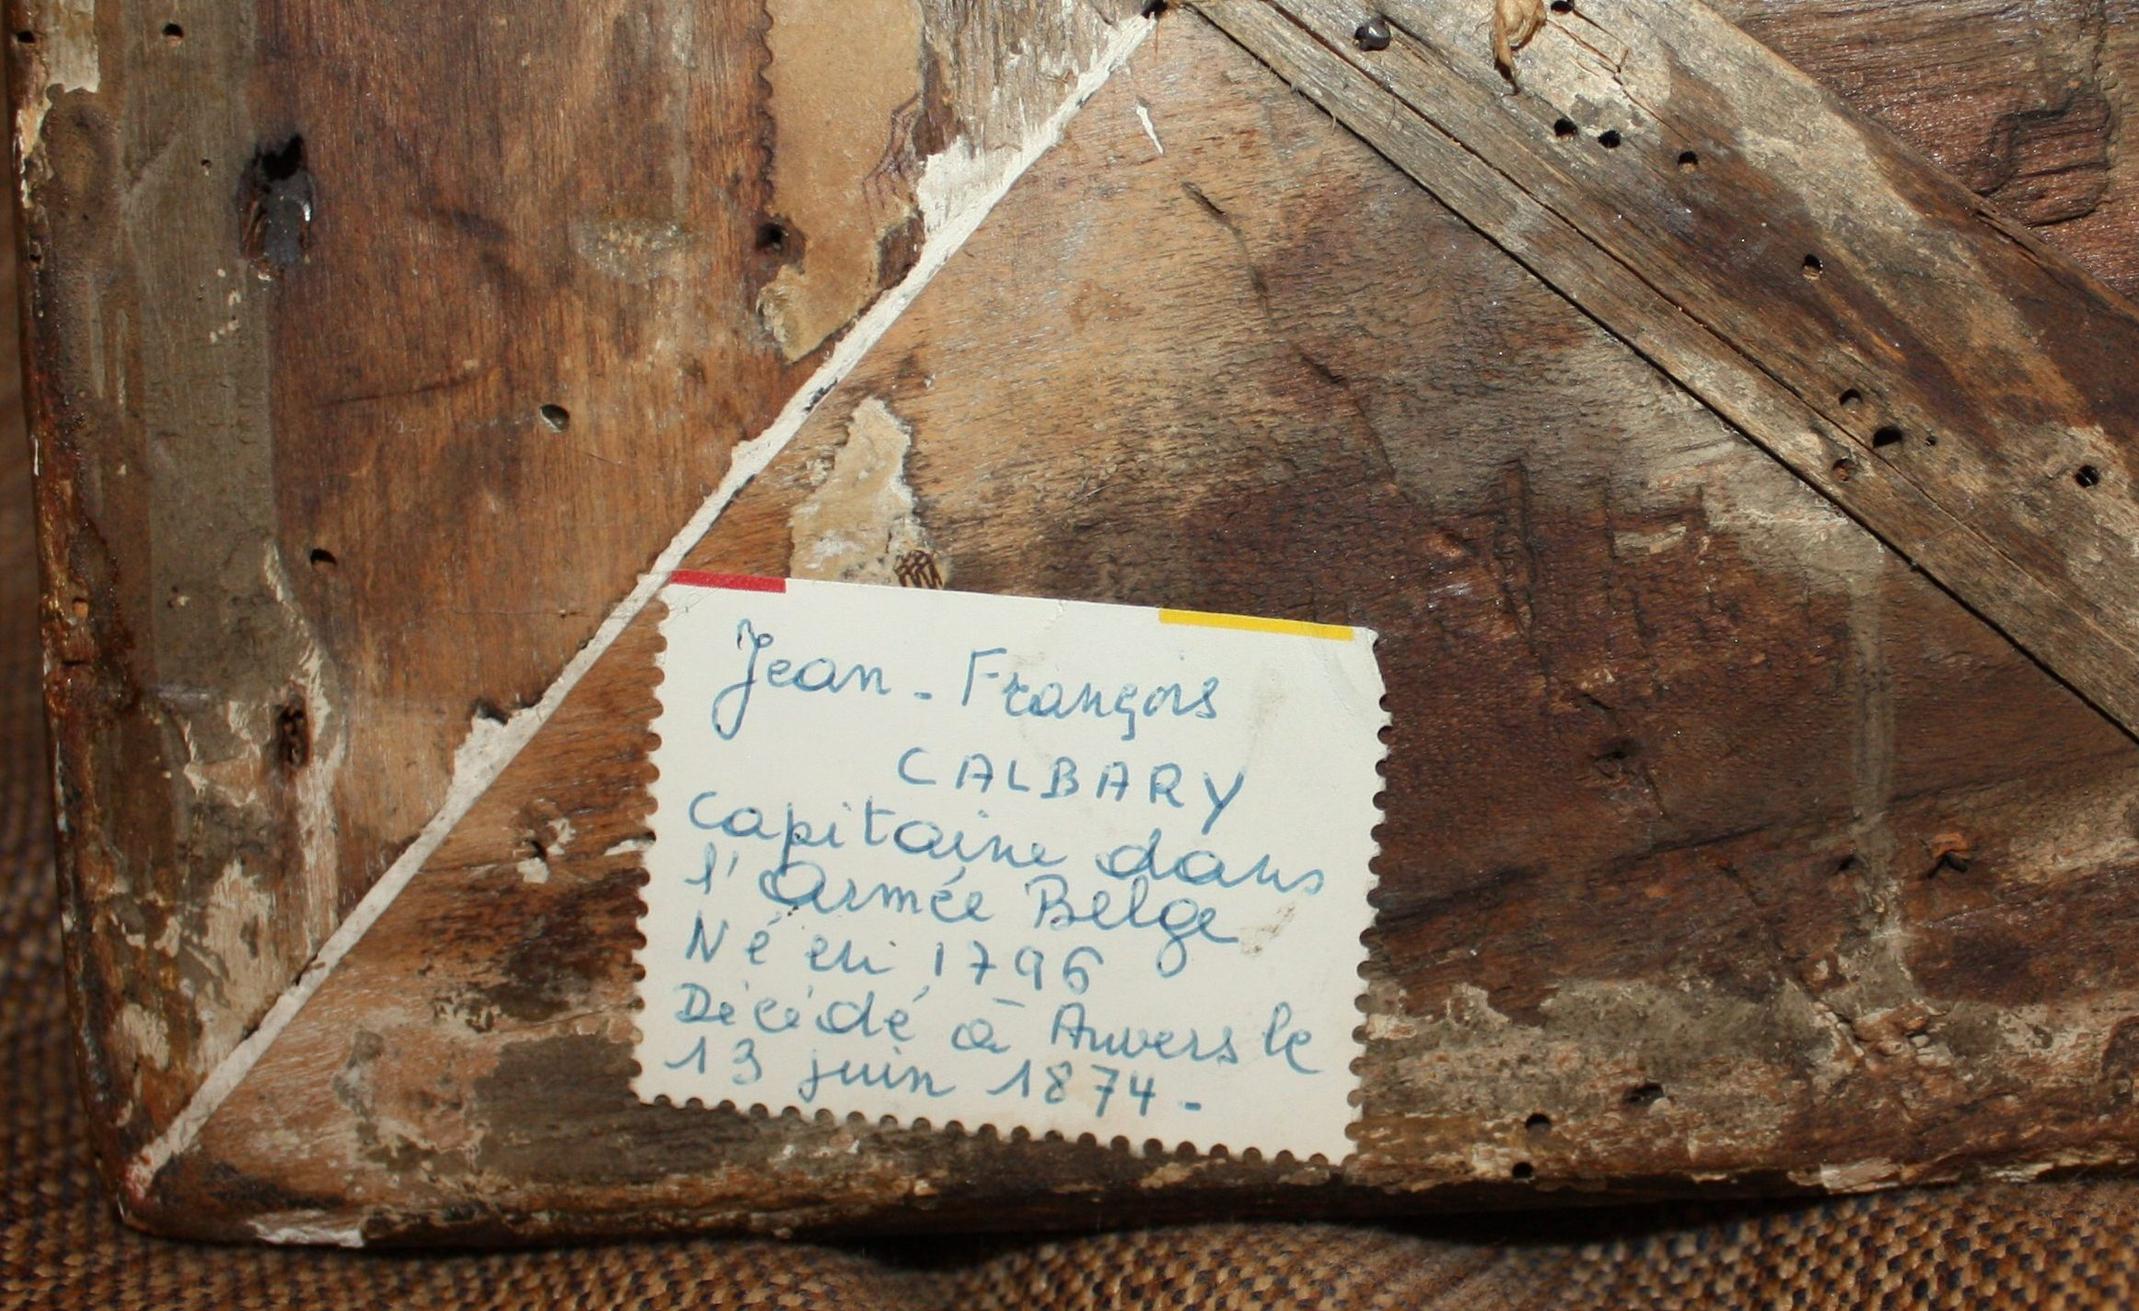 Jean - François
CALBARY
Capitaine dans
l'Armée Belge
Né en 1796
Décédé à Anvers le
13 juin 1874 -